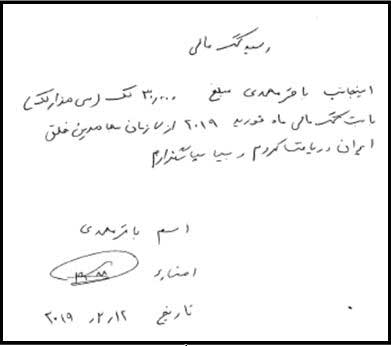 رسید کمک مالی
اینجانب باقر محمدی مبلغ ۳۰,۰۰۰ لک (سی هزار لک)
بابت کمک مالی ماه فوریه ۲۰۱۹ از سازمان مجاهدین خلق
ایران دریافت کردم و بسیار سپاسگذارم
اسم باقر محمدی
امضاء
تاریخ ۱۲ر۲ر۲۰۱۹